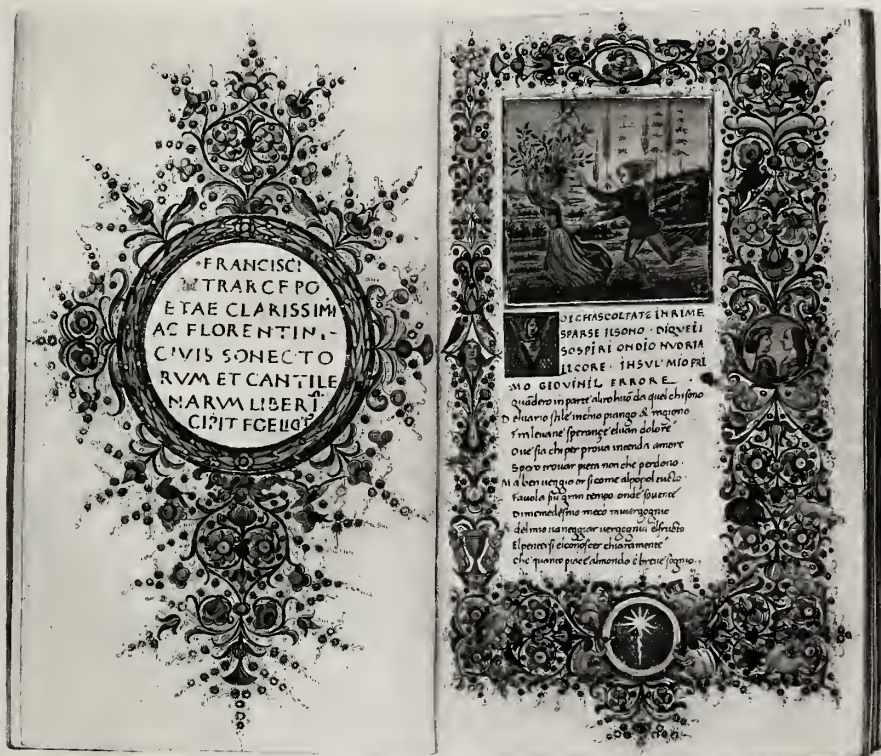 ·FRANCISCI
TRARCE PO
ETAE CLARISSIMI
AC FLORENTIN·
CIVIS SONECTO
RVM ET CANTILE
NARVM LIBER Ī
CIPIT
11
VOI CHASCOLTATE INRIME
SPARSE ILSONO · DIQVELI
SOSPIRI ONDIO NVDRIA
ILCORE · INSVL MIO PRI
MO GIOVINIL ERRORE
Quādero inparte altrohuō da quel chisono
Deluario stile inchio piango & ragiono
Fra leuane speranze eluan dolore
Oue sia chi per proua intenda amore
Spero trouar pieta non che perdono·
Ma ben ueggio or si come alpopol tucto·
Fauola fu gran tempo onde souente
Dimemedesmo meco miuergogno
delmio uaneggiar uergogna elfructo
Elpentersi elconoscer chiaramente
Che quanto piace almondo è breue sogno·